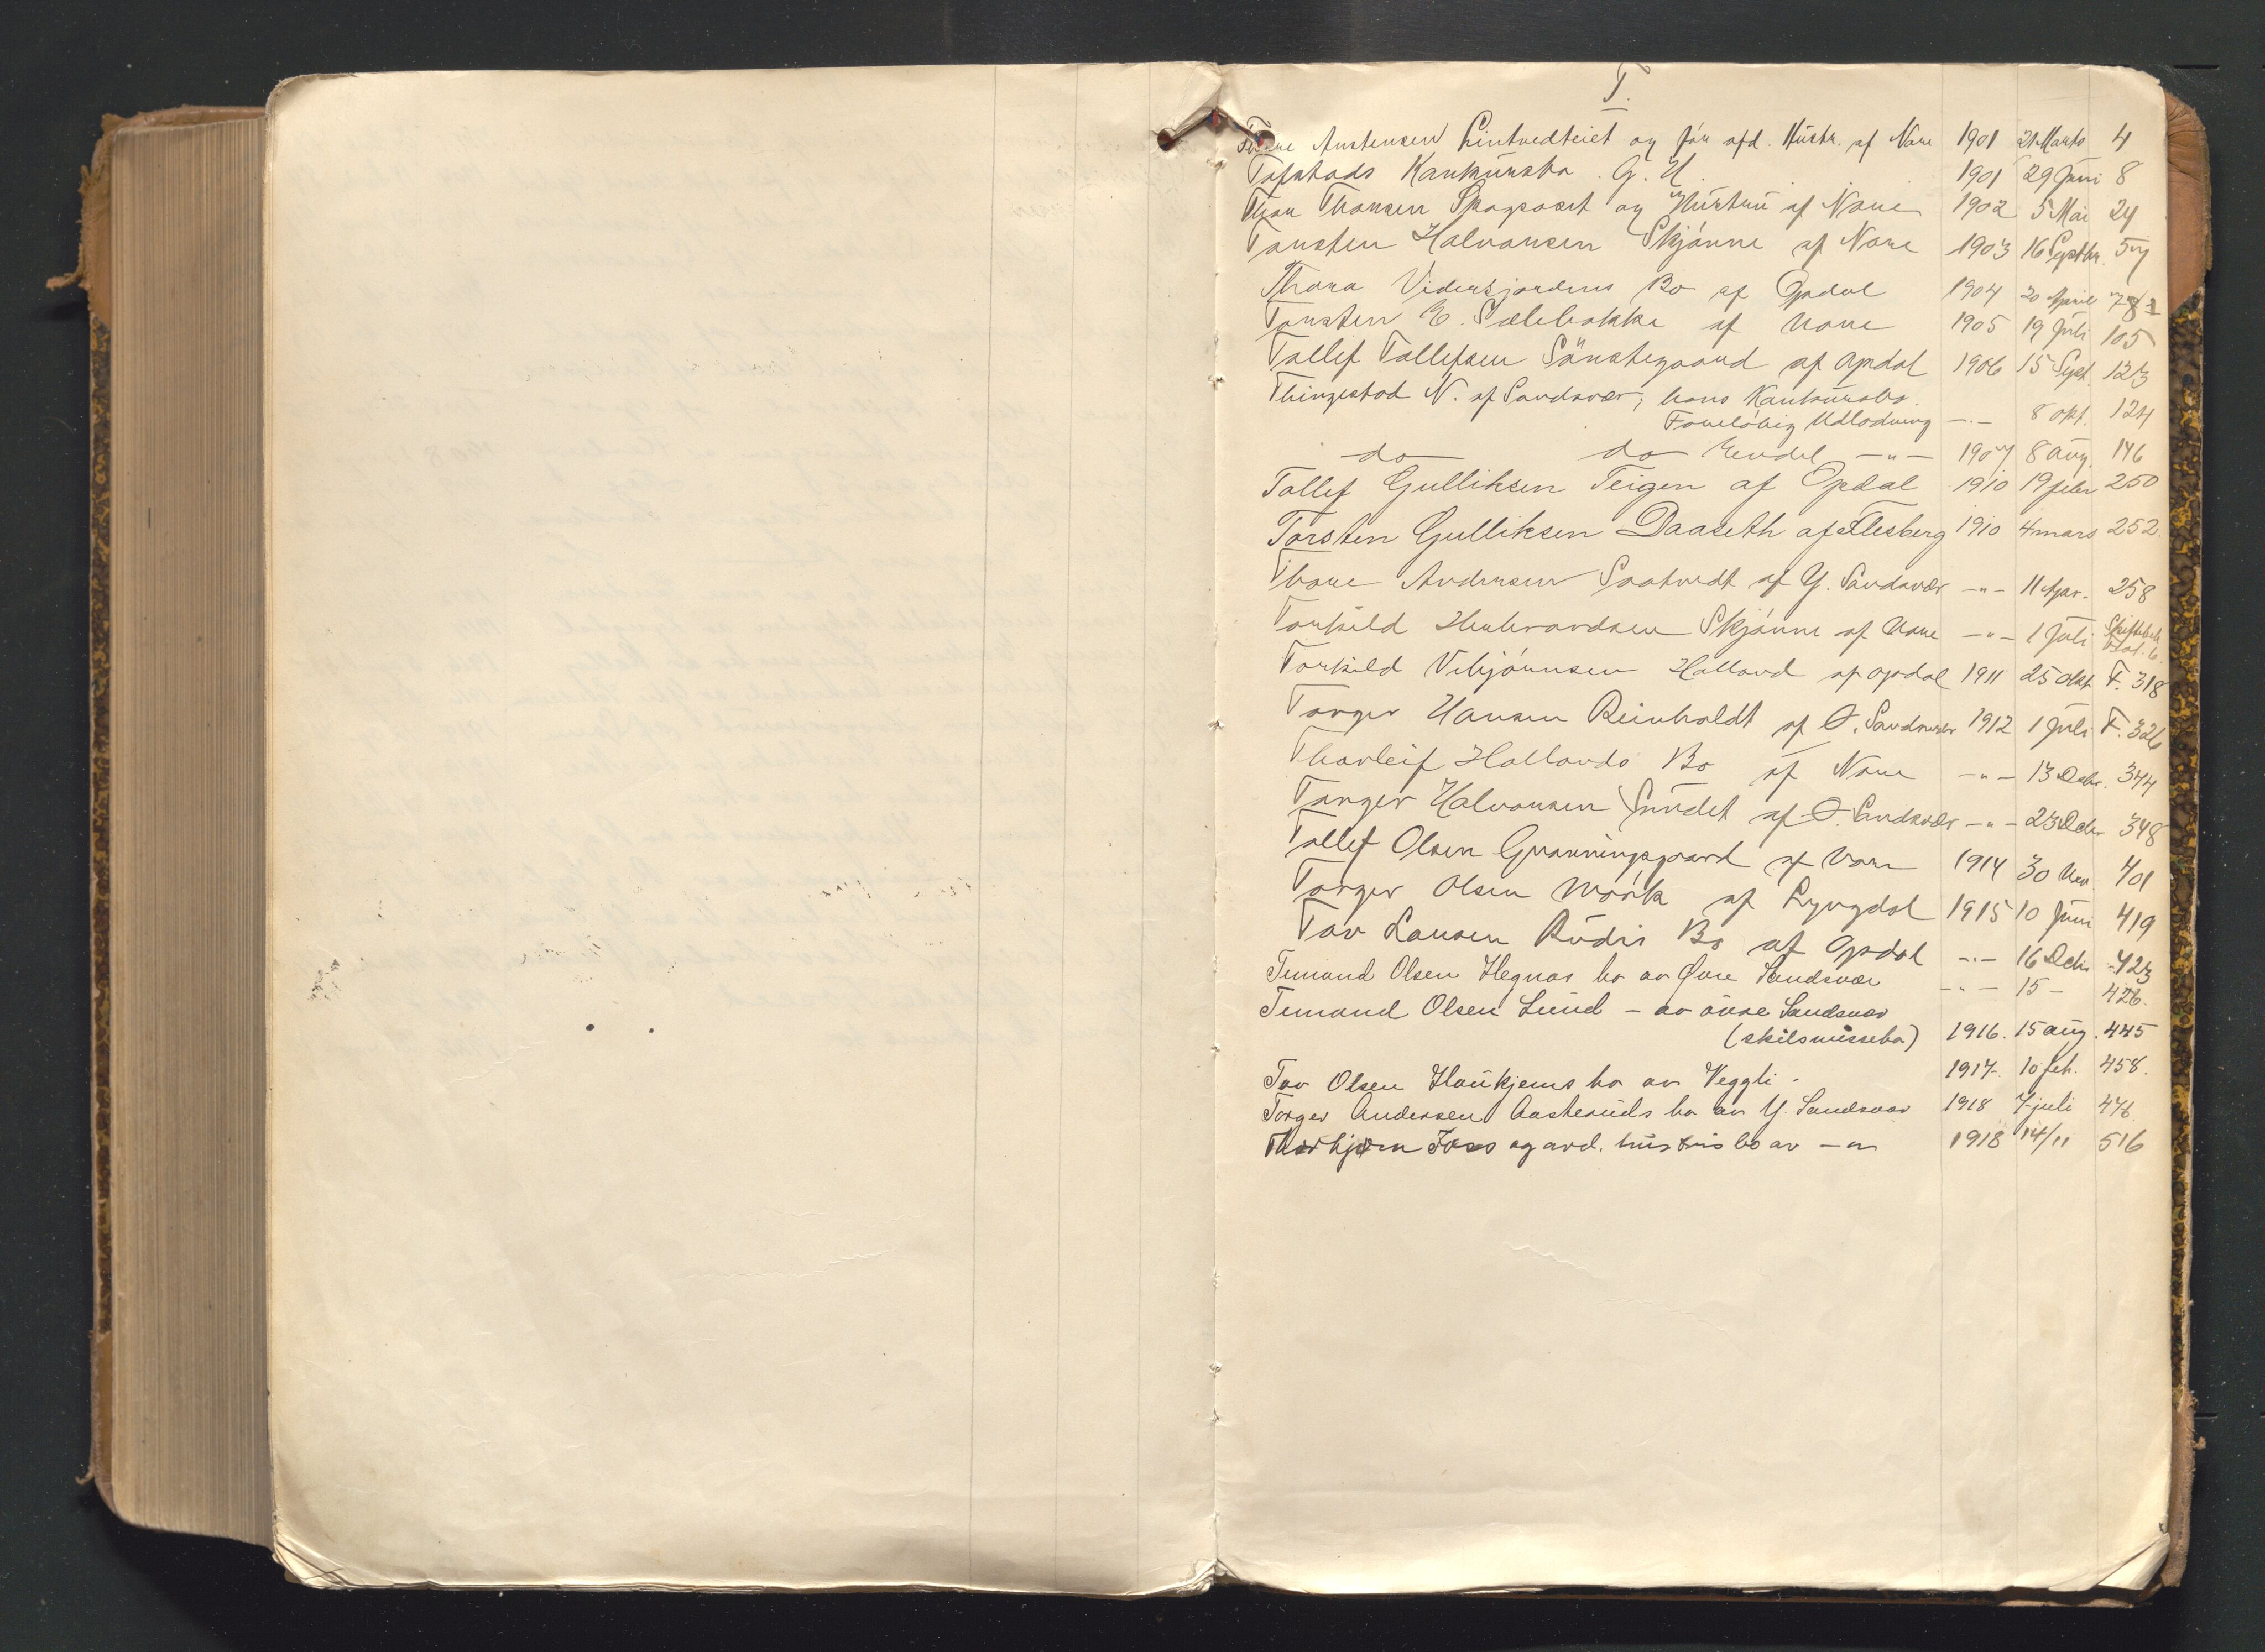 T.
Thore Austensen Lintvedteiet og før afd. Hustr. af Nore 1901 21 Marts 4
Tofstads Konkursbo. G. U. 1901 29 Juni 8
Thor Thorsen Skogsaast og Hustru af Nore 1902 5 Mai 24
Torsten Halvorsen Skjønne af Nore 1903 16 Septbr. 57
Thora Vidersjordens Bo af Opdal 1904 20 April 78
Torsten E. Sælebakke af Nore 1905 19 Juli 105
Tollef Tollefsen Sönstegaard af Opdal 1906 15 Sept. 123
Thingestad N. af Sandsvær, hans Konkursbo.
Foreløbig Udlodning -"- 8 Okt. 124
do do Endel -"- 1907 8 Aug. 146
Tollef Gulliksen Teigen af Opdal 1910 19 febr 250
Torsten Gulliksen Daaseth af Flesberg 1910 4 mars 252
Thore Andersen Saatvedt af Y. Sandsvær -"- 11 Apr. 258
Torkild Herbrandsen Skjønne af Nore -"- 1 Juli Skiftebeh. Prot. 6.
Torkild Vebjørnsen Halland af Opdal 1911 25 Okt. F. 318
Torger Hansen Reinholdt af Ø. Sandsvær 1912 1 Juli F. 326
Thorleif Hallands Bo af Nore -"- 13 Debr. 344
Torger Halvorsen Sundet af Ø. Sandsvær -"- 23 Debr 348
Tollef Olsen Grønningsgaard af Nore 1914 30 Nov. 401
Torger Olsen Mørk af Lyngdal 1915 10 Juni 419
Tov Larsen Rudis Bo af Opdal -"- 16 Debr 423
Ternand Olsen Hegnas bo av Øvre Sandsvær -"- 15 - 426.
Ternand Olsen Lund - av övre Sandsvær
(skilsmissebo) 1916. 15 aug. 445
Tov Olsen Haukjems bo av Veggli. 1917. 10 feb. 458.
Torger Andersen Aasteruds bo av Y. Sandsvær 1918 7 juli 476
Thorbjørn Foss og avd. hustrus bo av -"- 1918 14/11 516